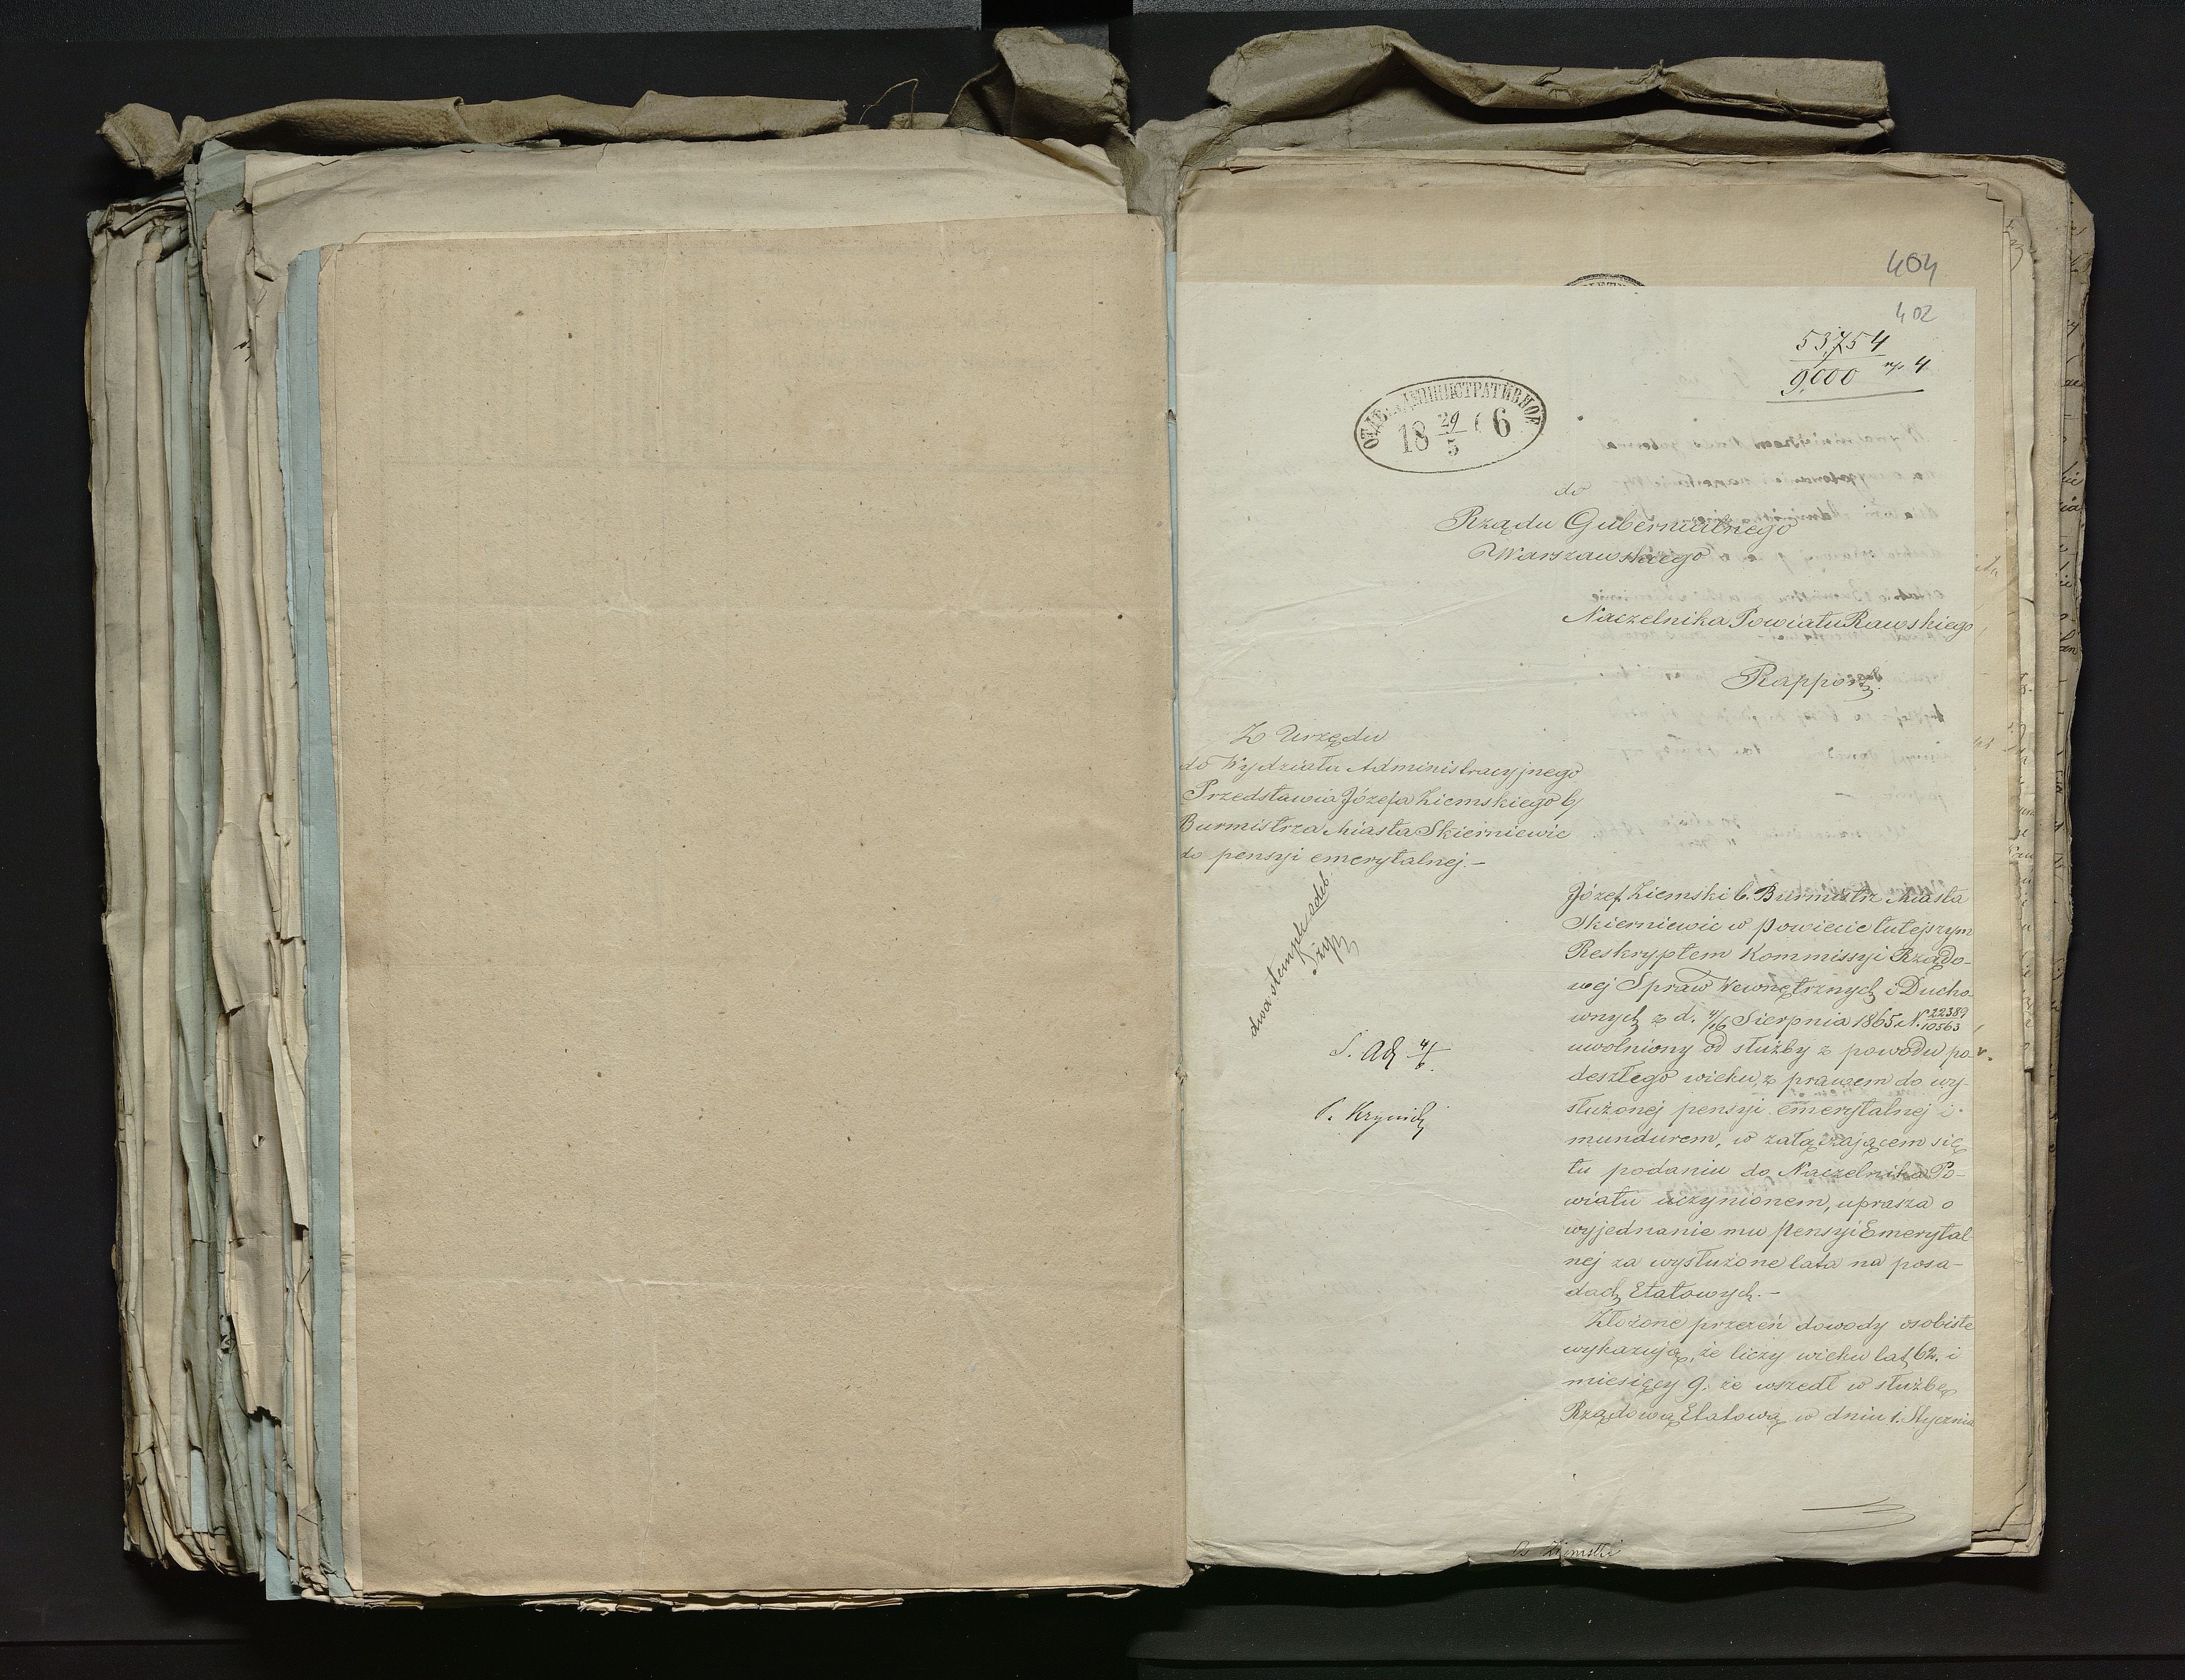 404
402
53,754
9,000 np 4
ОТДѢ. АДМИНИСТРАТИВНОЕ
18 29/5 66
do
Rządu Gubernialnego
Warszawskiego
Naczelnika Powiatu Rawskiego
Rapport.
Z Urzędu
do Wydziału Administracyjnego
Przedstawia Józefa Ziemskiego b/
Burmistrza Miasta Skierniewic
do pensyi emerytalnej.-
dwa stemple odeb.
S. Ad 4/6.
Józef Ziemski b. Burmistrz Miasta
Skierniewic w Powiecie tutejszym
Reskryptem Kommissyi Rządo-
wej Spraw Wewnętrznych i Ducho-
wnych z d. 4/16 Sierpnia 1865 N. 22389/10563
uwolniony od służby z powodu po-
deszłego wieku, z prawem do wy-
służonej pensyi emerytalnej i
mundurem, w załączającem się
tu podaniu do Naczelnika Po-
wiatu uczynionem, uprasza o
wyjednanie mu pensyi Emerytal-
nej za wysłużone lata na posa-
dach Etatowych.-
Złożone przezeń dowody osobiste
wykazują, że liczy wieku lat 62. i
miesięcy 9. że wszedł w służbę
Rządową Etatową w dniu 1. Stycznia
Ziemski